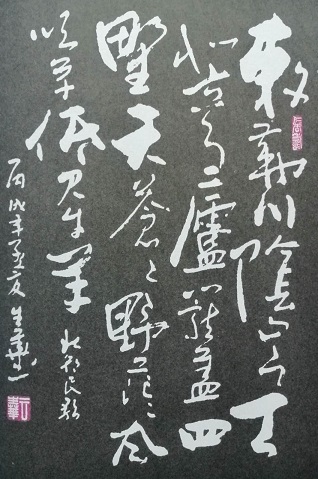 敕勒川陰山下天
似穹廬籠蓋四
野天蒼々野茫々風
吹草低見牛羊 北朝民歌
丙戌年孟夏